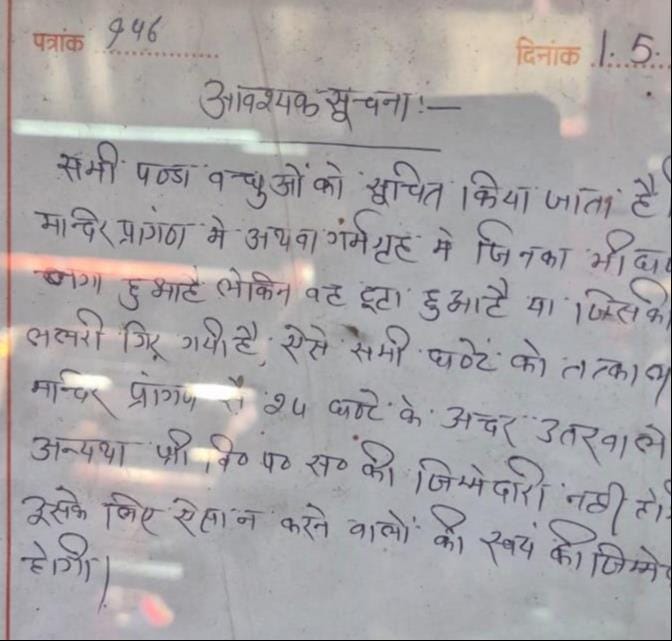 पत्रांक 946 दिनांक 1.5.
आवश्यक सूचना:—
सभी पण्डा बन्धुओं को सूचित किया जाता है
मान्दिर प्रागंण मे अथवा गर्मगृह मे जिनका भी घण
लगा हुआहै लेकिन वह टूटा हुआहै या जिसकी
ललरी गिर गयी है, ऐसे सभी घण्टें को तत्काल
मान्दिर प्रांगण से २४ घण्टे के अन्दर उतरवाले
अन्यथा श्री वि० प० स० की जिम्मेदारी नही हो
उसके लिए ऐसा न करने वालों की स्वयं की जिम्मे
होगी।